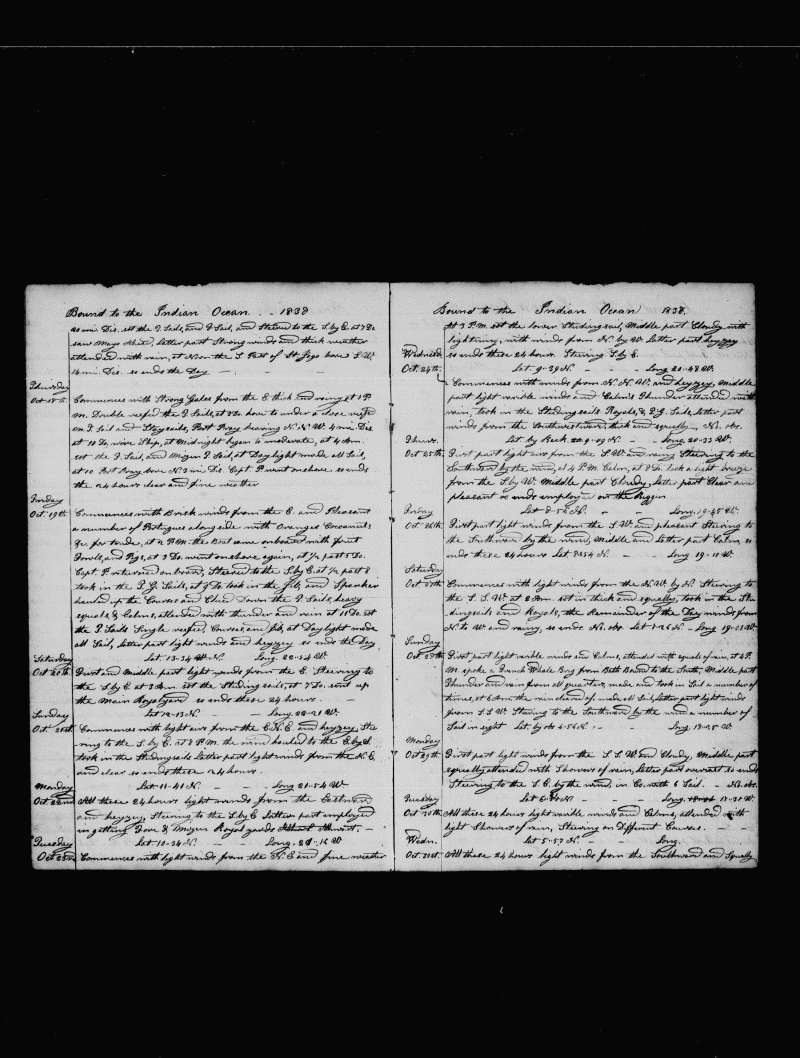 Bound to the Indian Ocean. - 1838
20 mi Dis. set the T. Sails, and J. Sail, and Steered to the S. by E. at 7 Do
saw Mayo Latter part Strong winds and thick weather
attended with rain, at Noon the S. Part of St. Jago bore S. W.
14 mi. Dis. so ends the Day
Thursday
Oct 18th. Commences with Strong Gales from the E. thick and rainy at 1 P
M. Double reefed the T. Sails, at 5 Do. hove to under a close reefed
M. T. Sail and Staysails, Port Bearing N. N. W. 4 mi. Dis
at 10 Do, wore Ship, at Midnight began to moderate, at 4 Am.
set the J. Sail, and Mizen T. Sail, at Daylight made all Sail,
at 10 Port Bore N. 3 mi Dis. Capt P. went on shore so ends
the 24 hours clear and fine weather
Friday
Oct. 19th. Commences with Brisk winds from the E. and Pleasant
a number of Portugues along side with Oranges Cocoanuts
&c. for trade, at 2 P.M. the Boat came on board with fruit
Fowls, and Pigs, at 3 Do. went on shore again, at 1/2 past 5 Do.
Capt. P. returned on board, Steered to the S. by E. at 1/2 past 8
took in the T. G. Sails, at 9 Do. took in the Jib, and Spanker
hauled up the Courses and Clued Down the T. Sails, heavy
squals, & Calms, attended with thunder and rain at 11 Do. set
the T. Sails Single reefed, Courses, and Jib, at Daylight made
all Sail, latter part light winds and heyzey so ends the Day
Saturday Lat 13-34 N. Long. 22-34 W.
Oct 20th. First and middle part light winds from the E. Steering to
the S. by E. at 3 Am. set the Studing sails, at 7 Do. sent up
the Main Royal yard so ends these 24 hours.
Sunday Lat 12-13 N. Long. 22-21 W.
Oct 21st. Commences with light airs from the E. N. E. and heyzey, Stee
ring to the S. by E. at 8 P.M. the wind hauled to the E. by S.
took in the Studingsails Latter part light winds from the N. E
and clear so ends these 24 hours.
Monday Lat 11-41 N. Long 21-54 W.
Oct 22nd All these 24 hours light winds from the Eastward,
and heyzey, Steering to the S. by E Latter part employed
in getting Fore & Mizen Royal yards
Tuesday Lat 10-34 N. Long. 21-16 W
Oct 23rd Commences with light winds from the N. E and fine weather
Bound to the Indian Ocean 1838.
At 3 P.M. set the lower Studing sail, Middle part Cloudy with
lightning, with winds from N. by W. Latter part heyzey
Wednesd. so ends these 24 hours. Steering S. by E.
Oct. 24th. Lat. 9-39 N. Long 20-48 W.
Commences with winds from N. N. W. and heyzey, middle
part light varible winds and Calms Thunder attended with
rain, took in the Studing sails Royals, & T. G. Sails, latter part
winds from the Southwestward, thick and squally, No. obs.
Thurs. Lat by Reck 9-09 N. Long. 20-33 W.
Oct 25th First part light airs from the S. W. and rainy Steering to the
Southward by the wind, at 4 P.M. Calm, at 8 Do. took a light breeze
from the S. by W. Middle part Cloudy, Latter part Clear and
pleasant so ends employed on the Riggin
Friday Lat 8-56 N. Long. 19-45 W.
Oct 26th. First part light winds from the S. W. and pleasant Steering to
the Southward by the wind, Middle and Latter part Calm so
ends these 24 hours Lat 8-54 N. Long 19-10 W.
Saturday
Oct 27th Commences with light winds from the N. W. by N. Steering to
the S. S. W. at 2 Am. set in thick and squally, took in the Stu
dingsails and Royals, the Remainder of the Day winds from
N. to W. and rainy, so ends. No. obs. Lat 7-26 N - Long 19-01 W.
Sunday
Oct 28th. First part light varible winds and Calms, attended with squals of rain, at 2 P.
M. spoke a French Whale Brig from Bath Bound to the South, Middle part
Thunder and rain from all quarters, made and took in Sail a number of
times, at 6 Am. the rain cleared of made all Sail, Latter part light winds
from S. S. W. Steering to the Southward by the wind a number of
Sail in sight Lat. by obs 6-56 N. Long. 18-25 W.
Monday
Oct 29th. First part light winds from the S. S. W. and Cloudy, Middle part
squally attended with Showers of rain, Latter part overcast so ends
Steering to the S. E. by the wind, in Co. with 6 Sail. - No. obs.
Tuesday Lat 6- N. Long. 17-30 W.
Oct 30th. All these 24 hours light varible winds and Calms, attended with
light Showers of rain, Steering on Different Courses.
Wedn. Lat 5-57 N. Long.
Oct. 31st. All these 24 hours light winds from the Southward and Squally